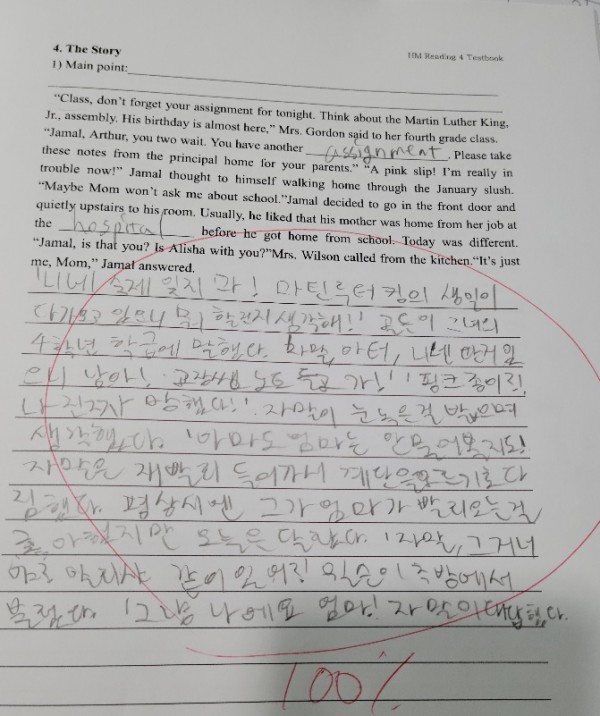 4. The Story
HM Reading 4 Textbook
1) Main point:
"Class, don't forget your assignment for tonight. Think about the Martin Luther King,
Jr., assembly. His birthday is almost here," Mrs. Gordon said to her fourth grade class.
"Jamal, Arthur, you two wait. You have another assignment. Please take
these notes from the principal home for your parents." "A pink slip! I'm really in
trouble now!" Jamal thought to himself walking home through the January slush.
"Maybe Mom won't ask me about school."Jamal decided to go in the front door and
quietly upstairs to his room. Usually, he liked that his mother was home from her job at
the hospital before he got home from school. Today was different.
"Jamal, is that you? Is Alisha with you?"Mrs. Wilson called from the kitchen."It's just
me, Mom," Jamal answered.
숙제 잊지 마! 마틴루터 킹의 생일이
다가오고 있으니 뭐 할건지 생각해!! 고든이 그녀의
4학년 학급에 말했다. 자말, 아터, 니넨 딴거 있
으니 남아! 교장쌤 노트 들고 가!'' 핑크종이!
나 진짜 망했다!' 자말이 눈 녹은걸 밟으며
생각했다. '아마도 엄마는 안물어볼지도!
자말은 재빨리 들어가서 계단을오르기로 다
짐했다. 평상시엔 그가 엄마가 빨리오는걸
좋아했지만 오늘은 달랐다. '자말, 그거너
야? 알리샤 같이 있 윌슨이 주방에서
'그냥 나에요 엄마! 자말이대답했다.
100%